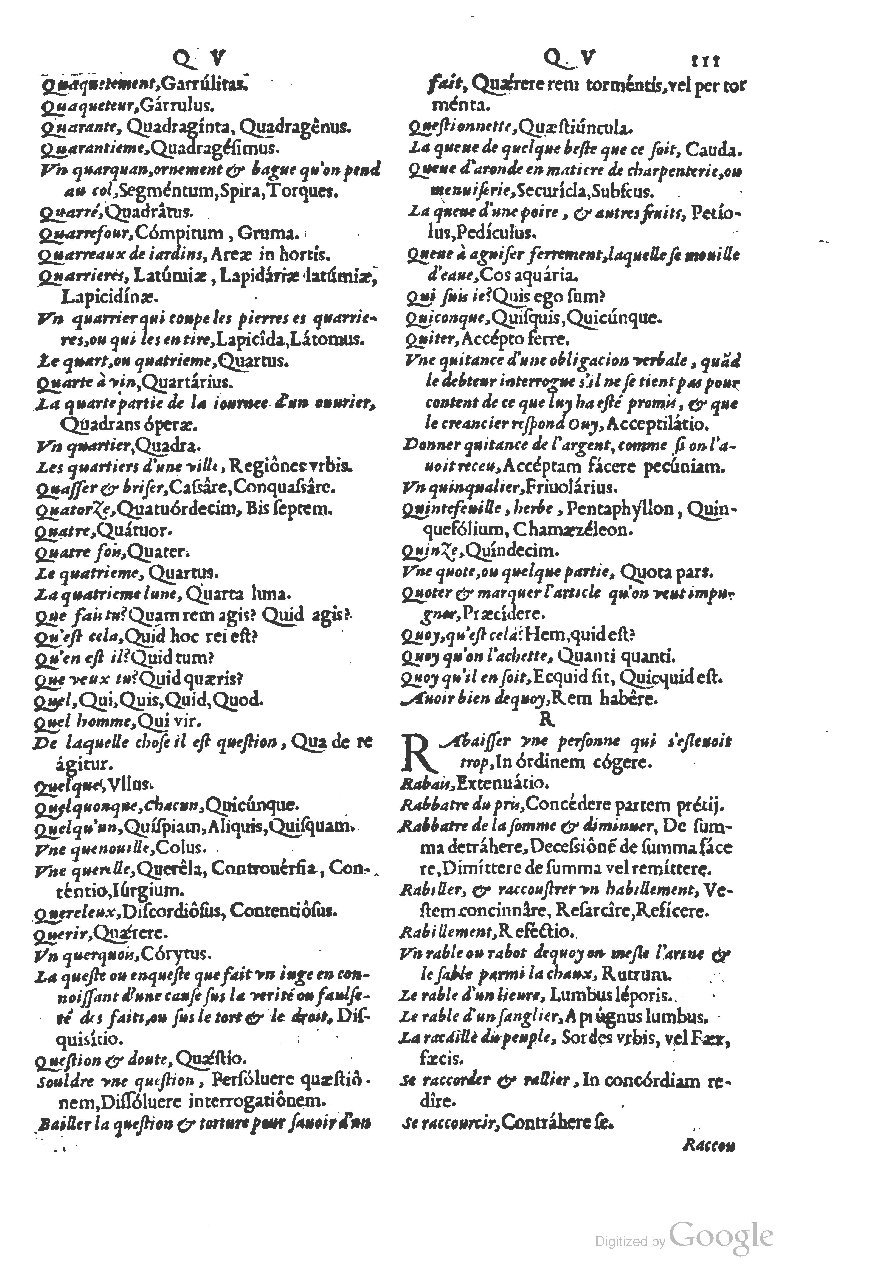 Q V
Quaquetement, Garrúlitas.
Quaqueteur, Gárrulus.
Quarante, Quadragínta, Quadragênus.
Quarantieme, Quadragéſimus.
Vn quarquan, ornement & bague qu'on pend
au col, Segméntum, Spira, Torques.
Quarré, Quadrâtus.
Quarrefour, Cómpitum, Gruma.
Quarreaux de iardins, Areæ in hortis.
Quarrieres, Latúmiæ, Lapidáriæ latúmiæ,
Lapicidínæ.
Vn quarrier qui coupe les pierres es quarrie-
res, ou qui les en tire, Lapicîda, Látomus.
Le quart, ou quatrieme, Quartus.
Quarte à vin, Quartárius.
La quarte partie de la iournee d'un ouurier,
Quadrans óperæ.
Vn quartier, Quadra.
Les quartiers d'une ville, Regiônes vrbis.
Quaſſer & briſer, Caſsâre, Conquaſsâre.
Quatorze, Quatuórdecim, Bis ſeptem.
Quatre, Quátuor.
Quatre fois, Quater.
Le quatrieme, Quartus.
La quatrieme lune, Quarta luna.
Que fais tu? Quam rem agis? Quid agis?
Qu'eſt cela, Quid hoc rei eſt?
Qu'en eſt il? Quid tum?
Que veux tu? Quid quæris?
Quel, Qui, Quis, Quid, Quod.
Quel homme, Qui vir.
De laquelle choſe il eſt queſtion, Qua de re
ágitur.
Quelque, Vllus.
Quelquonque, chacun, Quicúnque.
Quelqu'un, Quíſpiam, Aliquis, Quiſquam.
Vne quenouille, Colus.
Vne querelle, Querêla, Controuérſia, Con-
téntio, Iúrgium.
Quereleux, Diſcordiôſus, Contentiôſus.
Querir, Quǽrere.
Vn querquois, Córytus.
La queſte ou enqueſte que fait vn iuge en con-
noiſſant d'une cauſe ſus la verité ou faulſe-
té des faits, ou ſus le tort & le droit, Diſ-
quisítio.
Queſtion & doute, Quǽſtio.
Souldre vne queſtion, Perſóluere quæſtiô-
nem, Diſſóluere interrogatiônem.
Bailler la queſtion & torture pour ſauoir d'un
Q V 111
fait, Quǽrere rem torméntis, vel per tor
ménta.
Queſtionnette, Quæſtiúncula.
La queue de quelque beſte que ce ſoit, Cauda.
Queue d'aronde en matiere de charpenterie, ou
menuiſerie, Securícla, Subſcus.
La queue d'une poire, & autres fruits, Petío-
lus, Pedículus.
Queue à aguiſer ferrement, laquelle ſe mouille
d'eaue, Cos aquária.
Qui ſuis ie? Quis ego ſum?
Quiconque, Quiſquis, Quicúnque.
Quiter, Accépto ferre.
Vne quitance d'une obligacion verbale, quãd
le debteur interrogue s'il ne ſe tient pas pour
content de ce que luy ha eſté promis, & que
le creancier reſpond Ouy, Acceptilátio.
Donner quitance de l'argent, comme ſi on l'a-
uoit receu, Accéptam fácere pecúniam.
Vn quinqualier, Friuolárius.
Quintefeuille, herbe, Pentaphyllon, Quin-
quefólium, Chamæzéleon.
Quinze, Quíndecim.
Vne quote, ou quelque partie, Quota pars.
Quoter & marquer l'article qu'on veut impu-
gner, Præcídere.
Quoy, qu'eſt cela? Hem, quid eſt?
Quoy qu'on l'achette, Quanti quanti.
Quoy qu'il en ſoit, Ecquid ſit, Quicquid eſt.
Auoir bien dequoy, Rem habêre.
R
RAbaiſſer vne perſonne qui s'eſleuoit
trop, In órdinem cógere.
Rabais, Extenuátio.
Rabbatre du pris, Concédere partem prétij.
Rabbatre de la ſomme & diminuer, De ſum-
ma detráhere, Deceſsiônẽ de ſumma fáce
re, Dimíttere de ſumma vel remíttere.
Rabiller, & raccouſtrer vn habillement, Ve-
ſtem concinnâre, Reſarcîre, Reficere.
Rabillement, Reféctio.
Vn rable ou rabot dequoy on meſle l'arene &
le ſable parmi la chaux, Rutrum.
Le rable d'un lieure, Lumbus léporis.
Le rable d'un ſanglier, Aprúgnus lumbus.
La racaille du peuple, Sordes vrbis, vel Fæx,
fæcis.
Se raccorder & rallier, In concórdiam re-
dîre.
Se raccourcir, Contráhere ſe.
Raccou
Digitized by Google